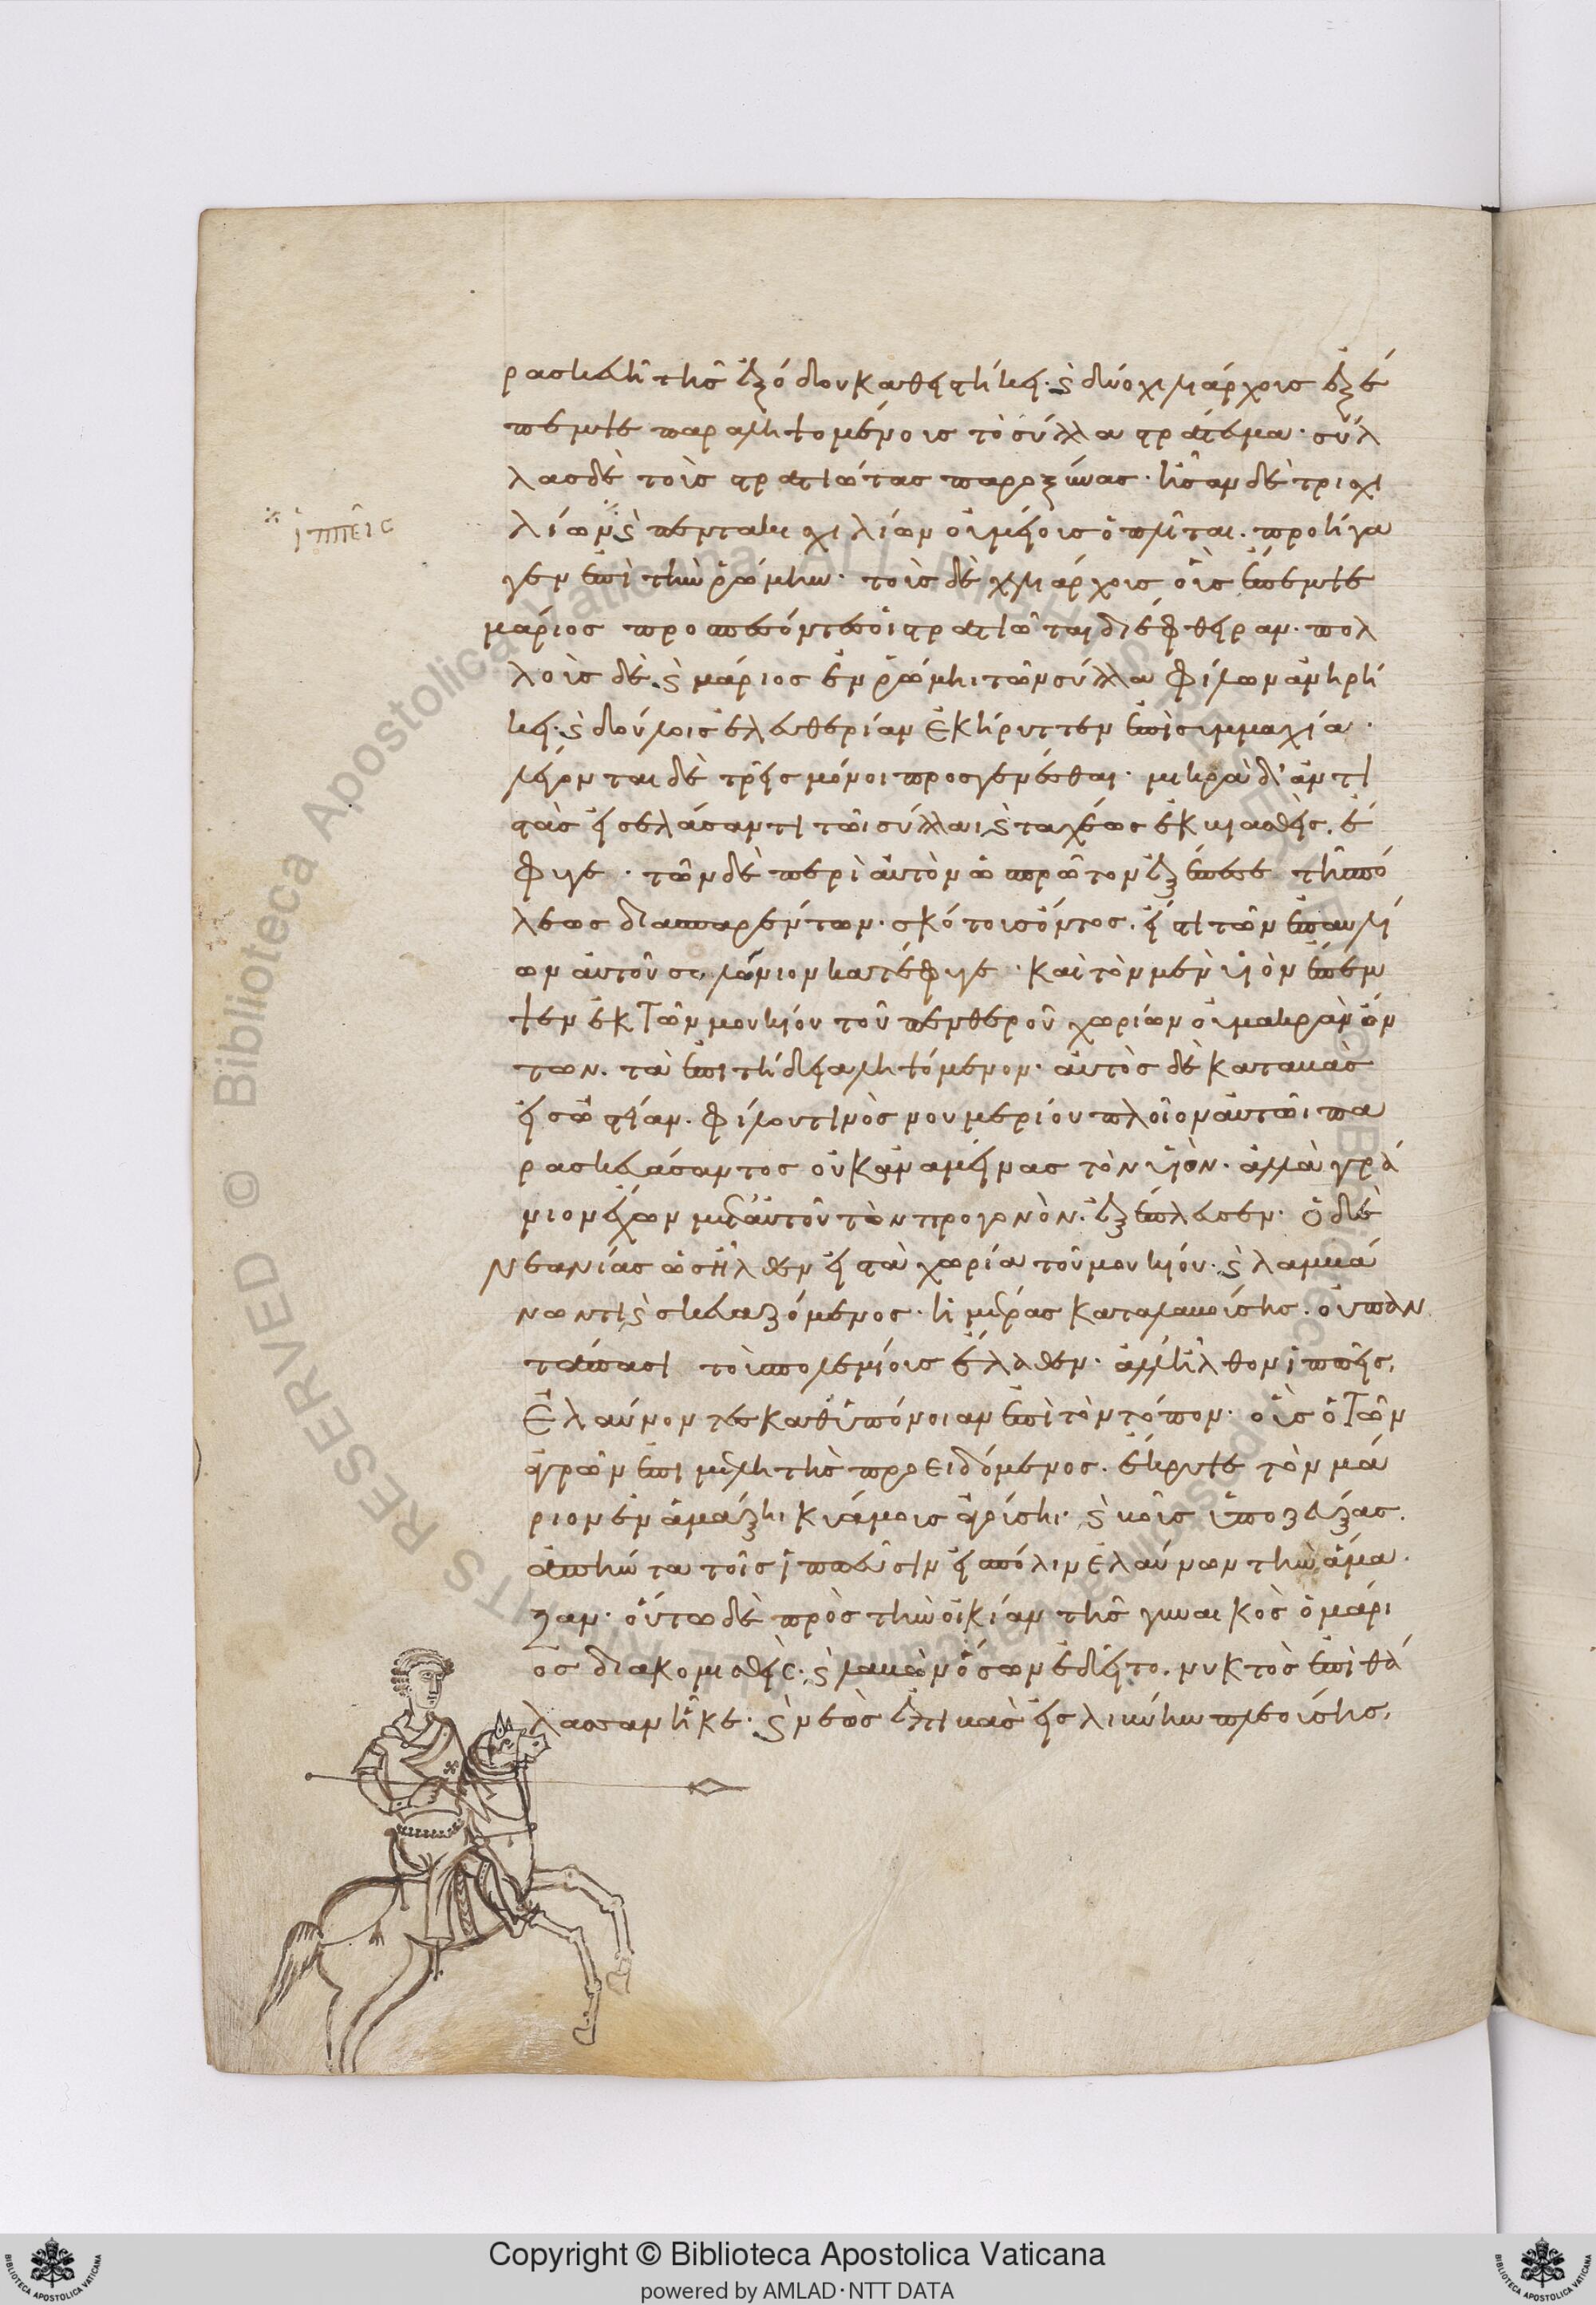 ρασκευῆ τῆς ἐξόδου καθειστήκει· καὶ δύο χιλιάρχους ἐξέ
πεμψε παραληψομένους τὸ σύλλα στράτευμα· σύλ
λας δὲ τοὺς στρατιώτας παροξύνας· ἦσαν δὲ τρισχι
λίων καὶ πεντακισχιλίων οὐ μείους ὁπλῖται· προῆγα
γεν ἐπὶ τὴν ῥώμην· τοὺς δὲ χιλιάρχους οὓς ἔπεμψε
μάριος προσπεσόντες οἱ στρατιῶται διέφθειραν· πολ
λοὺς δὲ καὶ μάριος ἐν ῥώμηι τῶν σύλλα φίλων ἀνηρή
κει· καὶ δούλοις ἐλευθερίαν ἐκήρυττεν ἐπὶ συμμαχία·
λέγονται δὲ τρεῖς μόνοι προσγενέσθαι· μικρὰ δ' ἀντι
στὰς εἰσελάσαντι τῶι σύλλαι καὶ ταχέως ἐκβιασθεὶς, ἔ
φυγε· τῶν δὲ περὶ αὐτὸν ὡς πρῶτον ἐξέπεσε τῆς πό
λεως διασπαρέντων· σκότους ὄντος, εἴς τι τῶν ἐπαυλί
ων αὐτοῦ σολώνιον κατέφυγε· καὶ τὸν μὲν υἱὸν ἔπεμ
ψεν ἐκ τῶν μουκίου τοῦ πενθεροῦ χωρίων οὐ μακρὰν ὄν
των. τὰ ἐπιτήδεια ληψόμενον· αὐτὸς δὲ καταβὰς
εἰς ὠστίαν· φίλου τινὸς νουμερίου πλοῖον αὐτῶι πα
ρασκευάσαντος οὐκ ἀναμείνας τὸν υἱὸν· ἀλλὰ γρά
νιον ἔχων μεθ' αὐτοῦ τὸν προγονὸν· ἐξέπλευσεν· ὁ δὲ
νεανίας ὡς ἦλθεν εἰς τὰ χωρία τοῦ μουκίου· καὶ λαμβά
νων τι καὶ σκευαζόμενος· ἡμέρας καταλαβούσης· οὐ παν
τάπασι τοὺς πολεμίους ἔλαθεν· ἀλλ' ἦλθον ἱππεῖς,
ἐλαύνοντες καθ' ὑπόνοιαν ἐπὶ τὸν τόπον· οὓς ὁ τῶν
ἀγρῶν ἐπιμελητὴς προειδόμενος· ἔκρυψε τὸν μά
ριον ἐν ἁμάξηι κυάμους ἀγούσηι· καὶ βοῦς ὑποζεύξας.
ἀπήντα τοῖς ἱππεῦσιν εἰς πόλιν ἐλαύνων τὴν ἅμα
ξαν· οὕτω δὲ πρὸς τὴν οἰκίαν τῆς γυναικὸς ὁ μάρι
ος διακομισθεὶς· καὶ λαβὼν ὅσων ἐδεῖτο, νυκτὸς ἐπὶ θά
λασσαν ἧκε· καὶ νεὼς ἐπιβὰς εἰς λιβύην πλεούσης,
ἱππεῖς
Copyright © Biblioteca Apostolica Vaticana
powered by AMLAD·NTT DATA